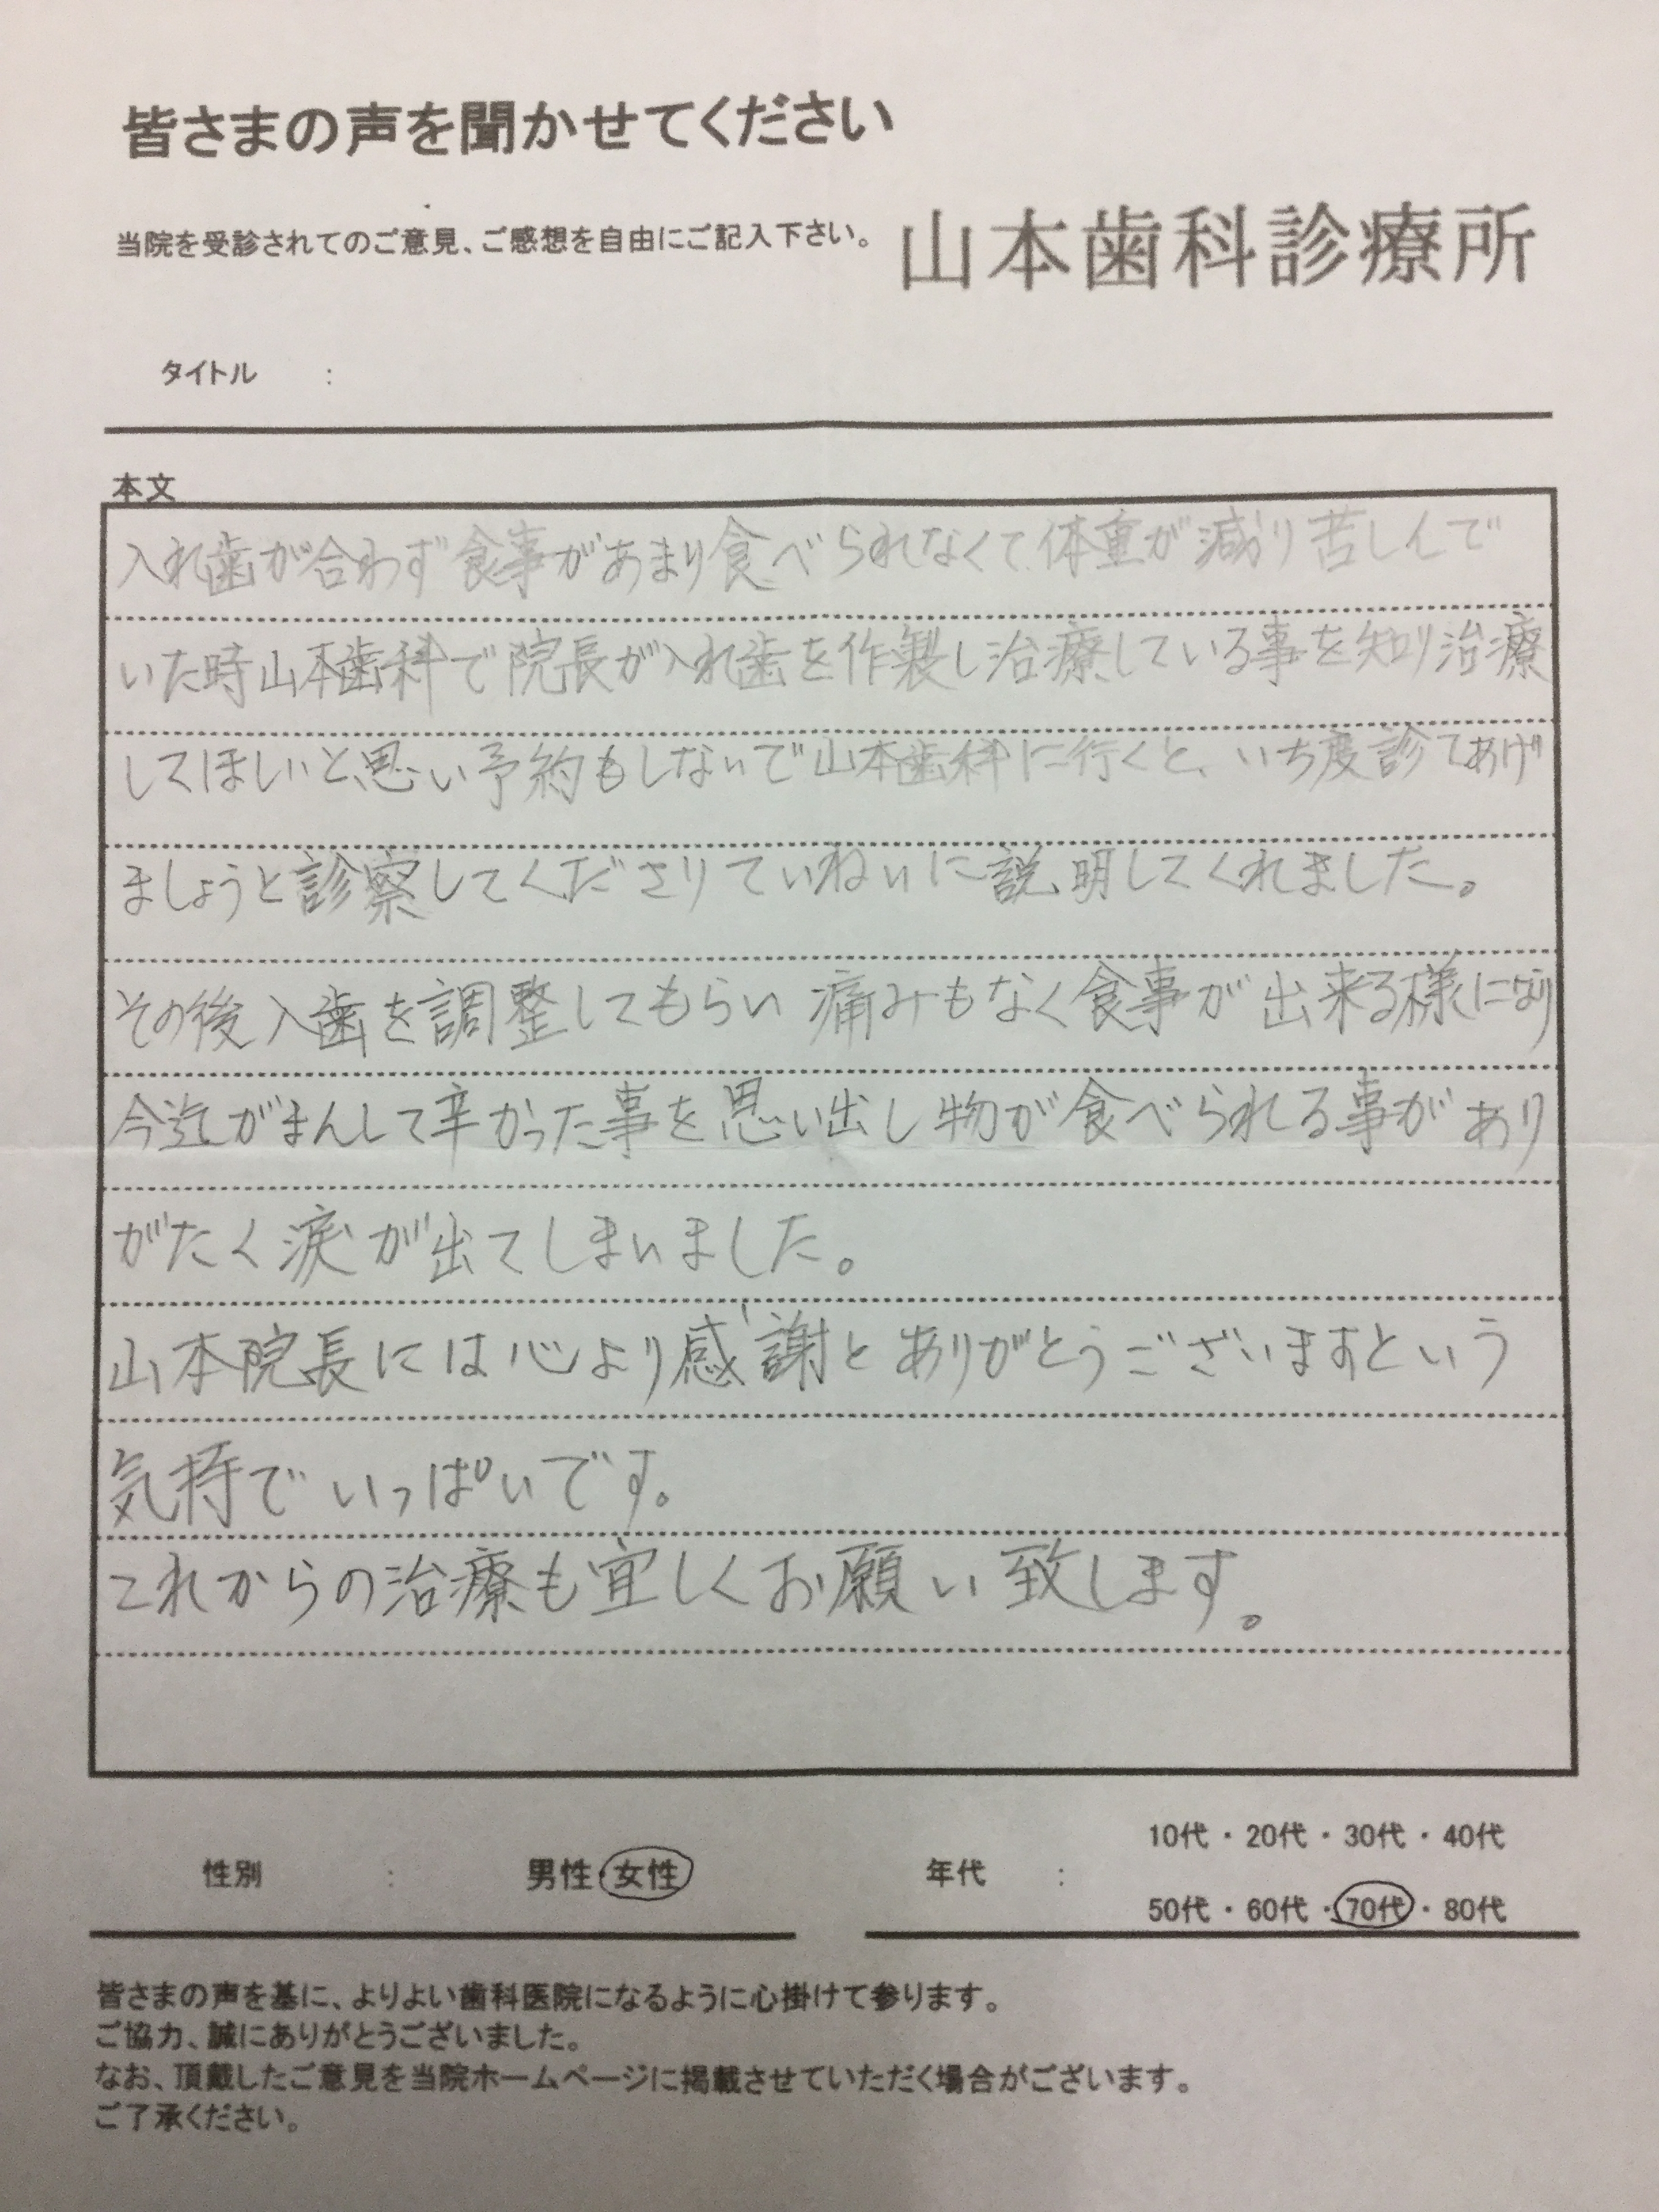 皆さまの声を聞かせてください
当院を受診されてのご意見、ご感想を自由にご記入下さい。 山本歯科診療所
タイトル :
本文
入れ歯が合わず食事があまり食べられなくて、体重が減り苦しんで
いた時山本歯科で院長が入れ歯を作製し治療している事を知り治療
してほしいと思い予約もしないで山本歯科に行くと、いち度診てあげ
ましょうと診察してくださりていねいに説明してくれました。
その後入歯を調整してもらい痛みもなく食事が出来る様になり
今迄がまんして辛かった事を思い出し物が食べられる事があり
がたく涙が出てしまいました。
山本院長には心より感謝とありがとうございますという
気持でいっぱいです。
これからの治療も宜しくお願い致します。
性別 : 男性・女性 年代 : 10代・20代・30代・40代
50代・60代・70代・80代
皆さまの声を基に、よりよい歯科医院になるように心掛けて参ります。
ご協力、誠にありがとうございました。
なお、頂戴したご意見を当院ホームページに掲載させていただく場合がございます。
ご了承ください。